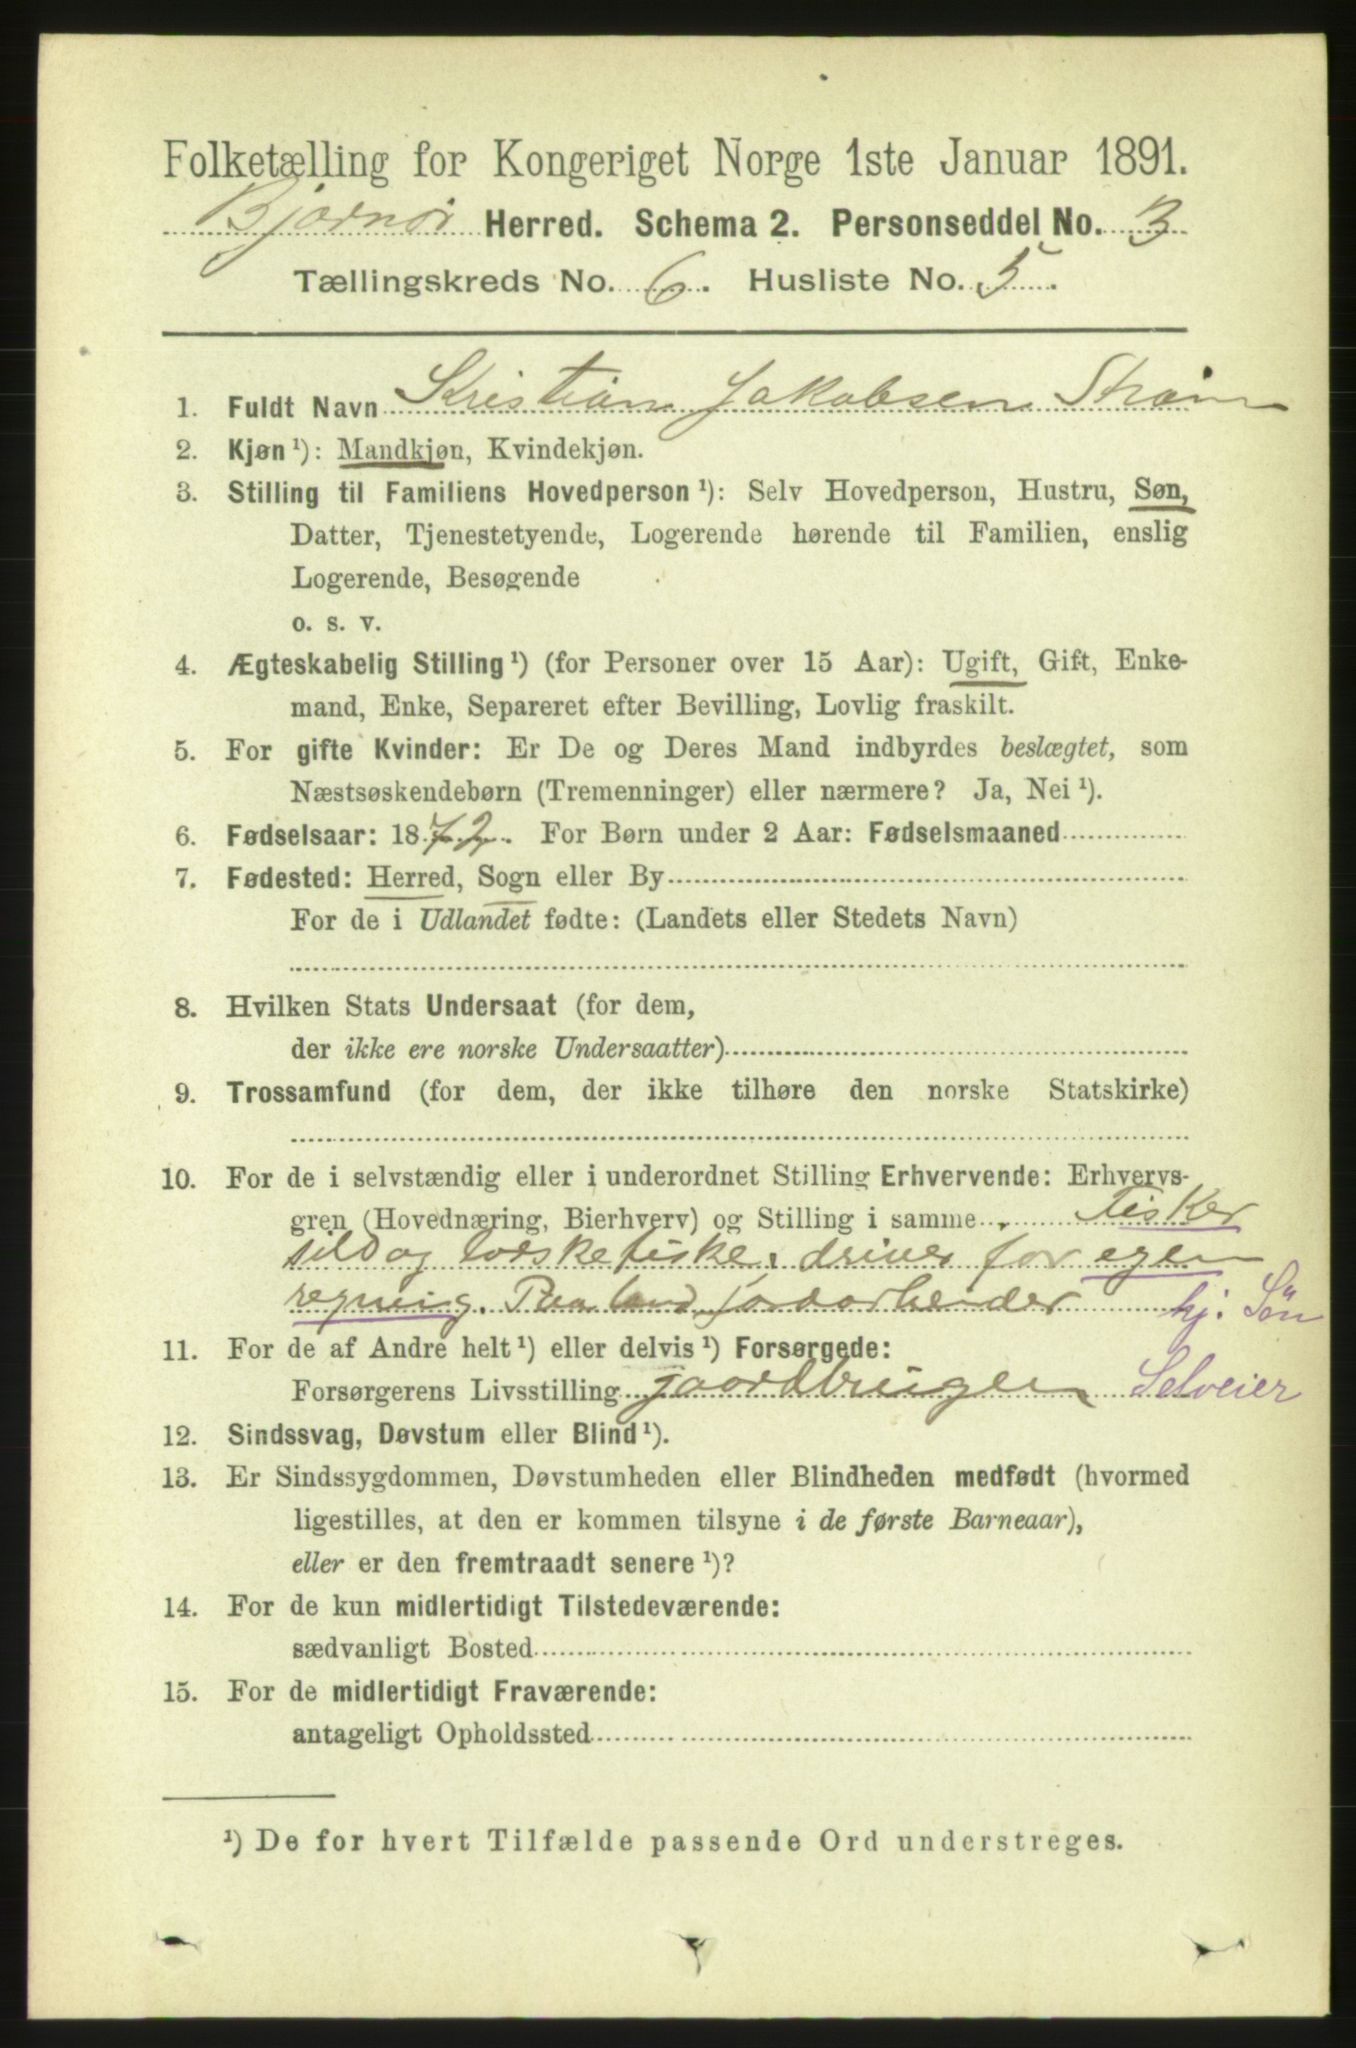 Folketælling for Kongeriget Norge 1ste Januar 1891.
Bjørnør Herred. Schema 2. Personseddel No. 3
Tællingskreds No. 6. Husliste No. 5.
1. Fuldt Navn Kristian Jakobsen
2. Kjøn ¹): Mandkjøn, Kvindekjøn.
3. Stilling til Familiens Hovedperson ¹): Selv Hovedperson, Hustru, Søn,
Datter, Tjenestetyende, Logerende hørende til Familien, enslig
Logerende, Besøgende
o. s. v.
4. Ægteskabelig Stilling ¹) (for Personer over 15 Aar): Ugift, Gift, Enke-
mand, Enke, Separeret efter Bevilling, Lovlig fraskilt.
5. For gifte Kvinder: Er De og Deres Mand indbyrdes beslægtet, som
Næstsøskendebørn (Tremenninger) eller nærmere? Ja, Nei ¹).
6. Fødselsaar: 1872. For Børn under 2 Aar: Fødselsmaaned
7. Fødested: Herred, Sogn eller By
For de i Udlandet fødte: (Landets eller Stedets Navn)
8. Hvilken Stats Undersaat (for dem,
der ikke ere norske Undersaatter)
9. Trossamfund (for dem, der ikke tilhøre den norske Statskirke)
10. For de i selvstændig eller i underordnet Stilling Erhvervende: Erhvervs-
gren (Hovednæring, Bierhverv) og Stilling i samme. Fisker
sild og torskefiske, driver for egen
regning. Paa land jordarbeider hj. Søn
11. For de af Andre helt ¹) eller delvis ¹) Forsørgede:
Forsørgerens Livsstilling gaardbruger Selveier
12. Sindssvag, Døvstum eller Blind ¹).
13. Er Sindssygdommen, Døvstumheden eller Blindheden medfødt (hvormed
ligestilles, at den er kommen tilsyne i de første Barneaar),
eller er den fremtraadt senere ¹)?
14. For de kun midlertidigt Tilstedeværende:
sædvanligt Bosted
15. For de midlertidigt Fraværende:
antageligt Opholdssted
¹) De for hvert Tilfælde passende Ord understreges.